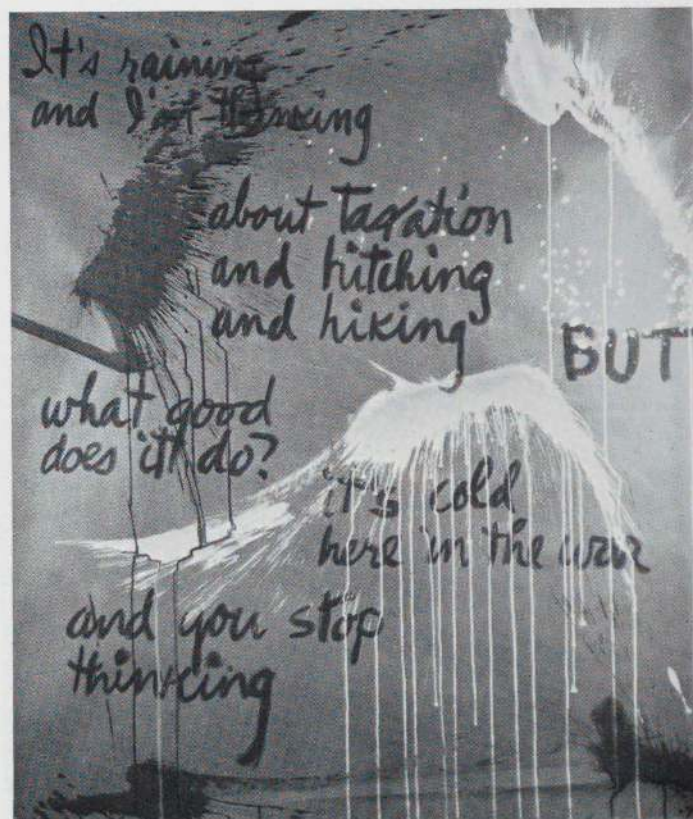 It's raining
and I'm thinking
about Taxation
and hitching
and hiking
BUT
what good
does it do?
it's cold
here in the
and you stop
thinking